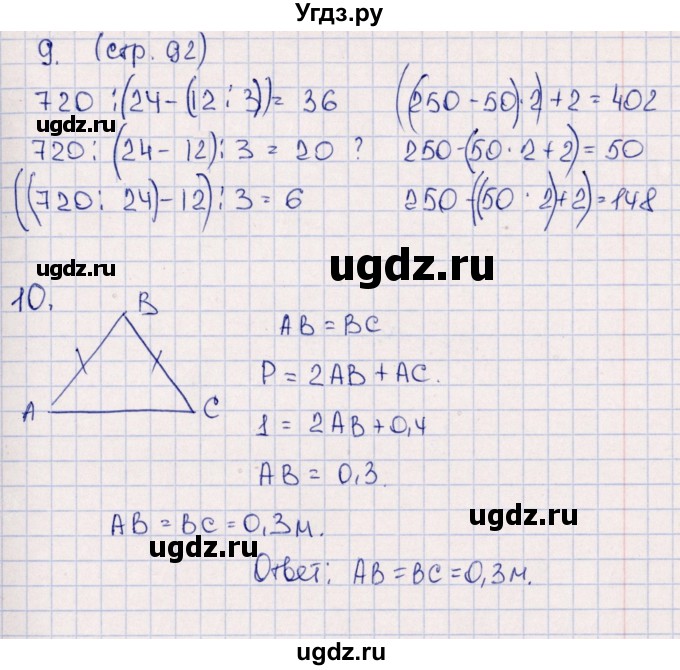 Угдз.ру
9. (стр. 92)
720 : (24 - (12 : 3)) = 36
((250 - 50) · 2) + 2 = 402
ugdz.ru
ugdz.ru
720 : (24 - 12) : 3 = 20 ?
250 - (50 · 2 + 2) = 50
((720 : 24) - 12) : 3 = 6
250 - ((50 · 2) + 2) = 148
ugdz.ru
ugdz.ru
ugdz.ru
10.
B
A
C
AB = BC
P = 2AB + AC.
1 = 2AB + 0,4
AB = 0,3.
ugdz.ru
AB = BC = 0,3 м.
ugdz.ru
Ответ: AB = BC = 0,3 м.
ugdz.ru
ugdz.ru